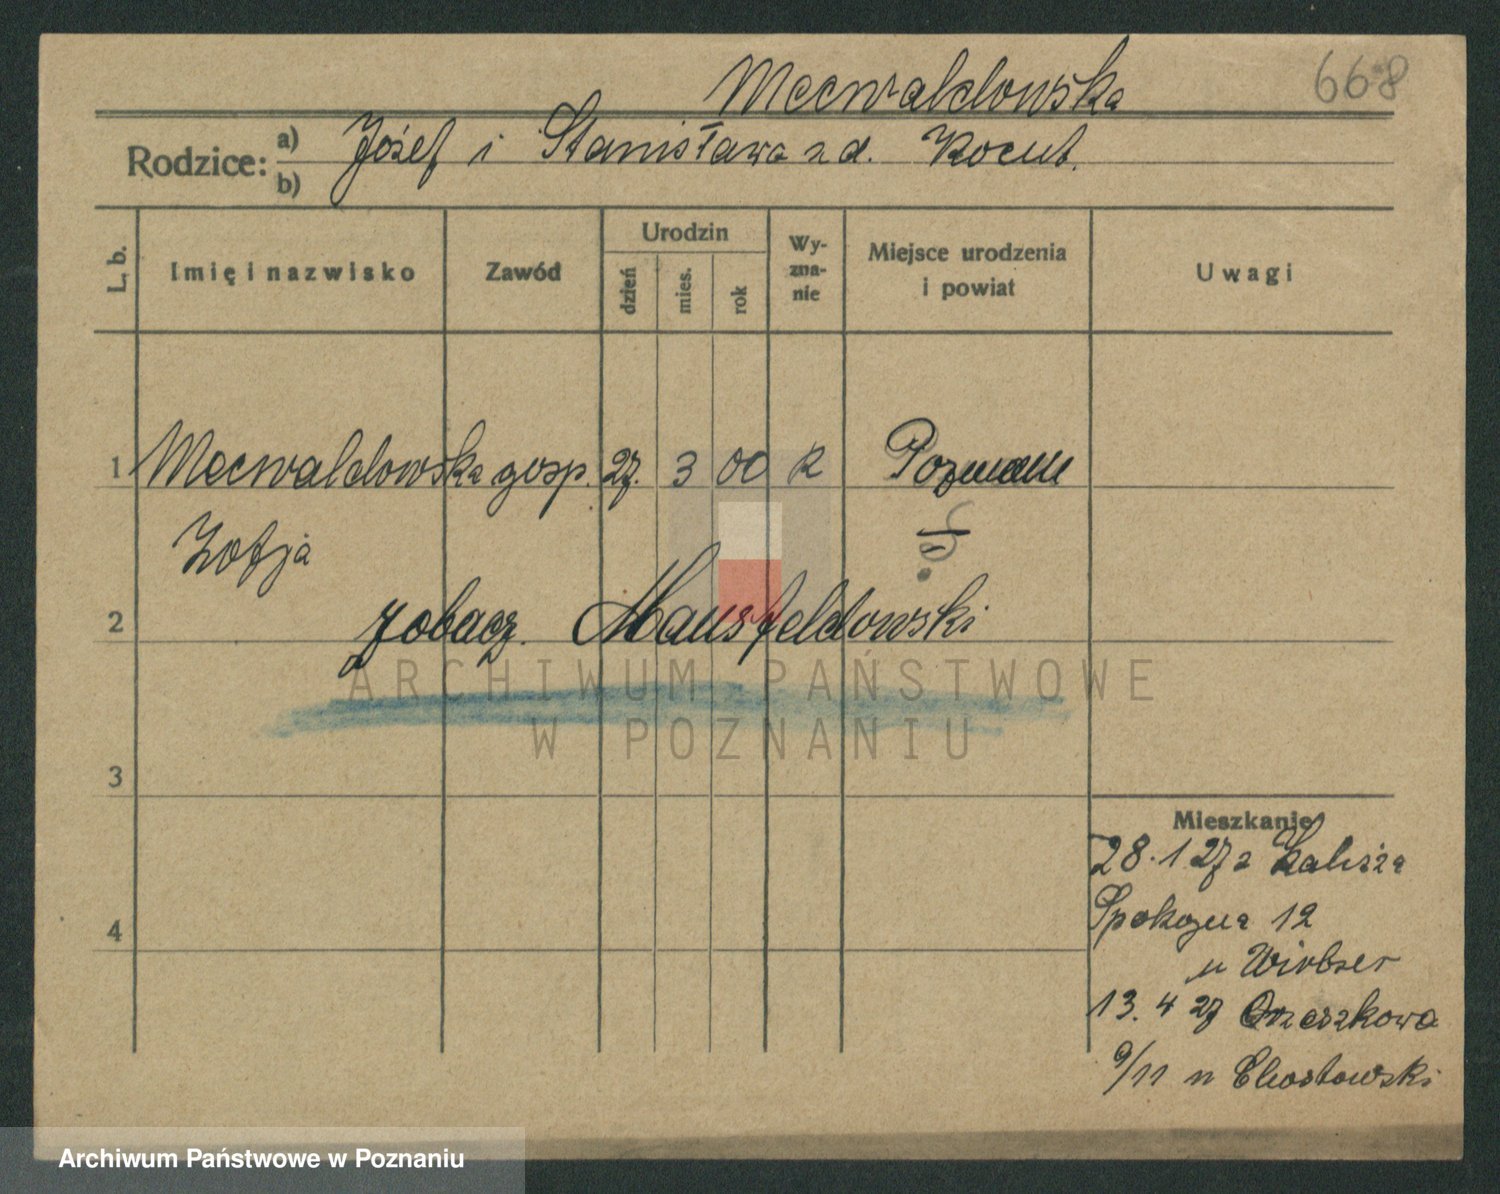 Mecwaldowska
668
Rodzice: a) b)
Józef i Stanisława z d. Kocut.
L. b.
Imię i nazwisko
Zawód
Urodzin
dzień
mies.
rok
Wy-
zna-
nie
Miejsce urodzenia
i powiat
Uwagi
1 Mecwaldowska gosp. 27. 3 00 k
Zofja
2 zobacz. Mansfeldowski
ARCHIWUM PAŃSTWOWE
W POZNANIU
3
Mieszkanie
28.1 27 z Kalisza
4
Spokojna 12
u
13. 4 27 Orzeszkowa
9/11 u Chostowski
Archiwum Państwowe w Poznaniu